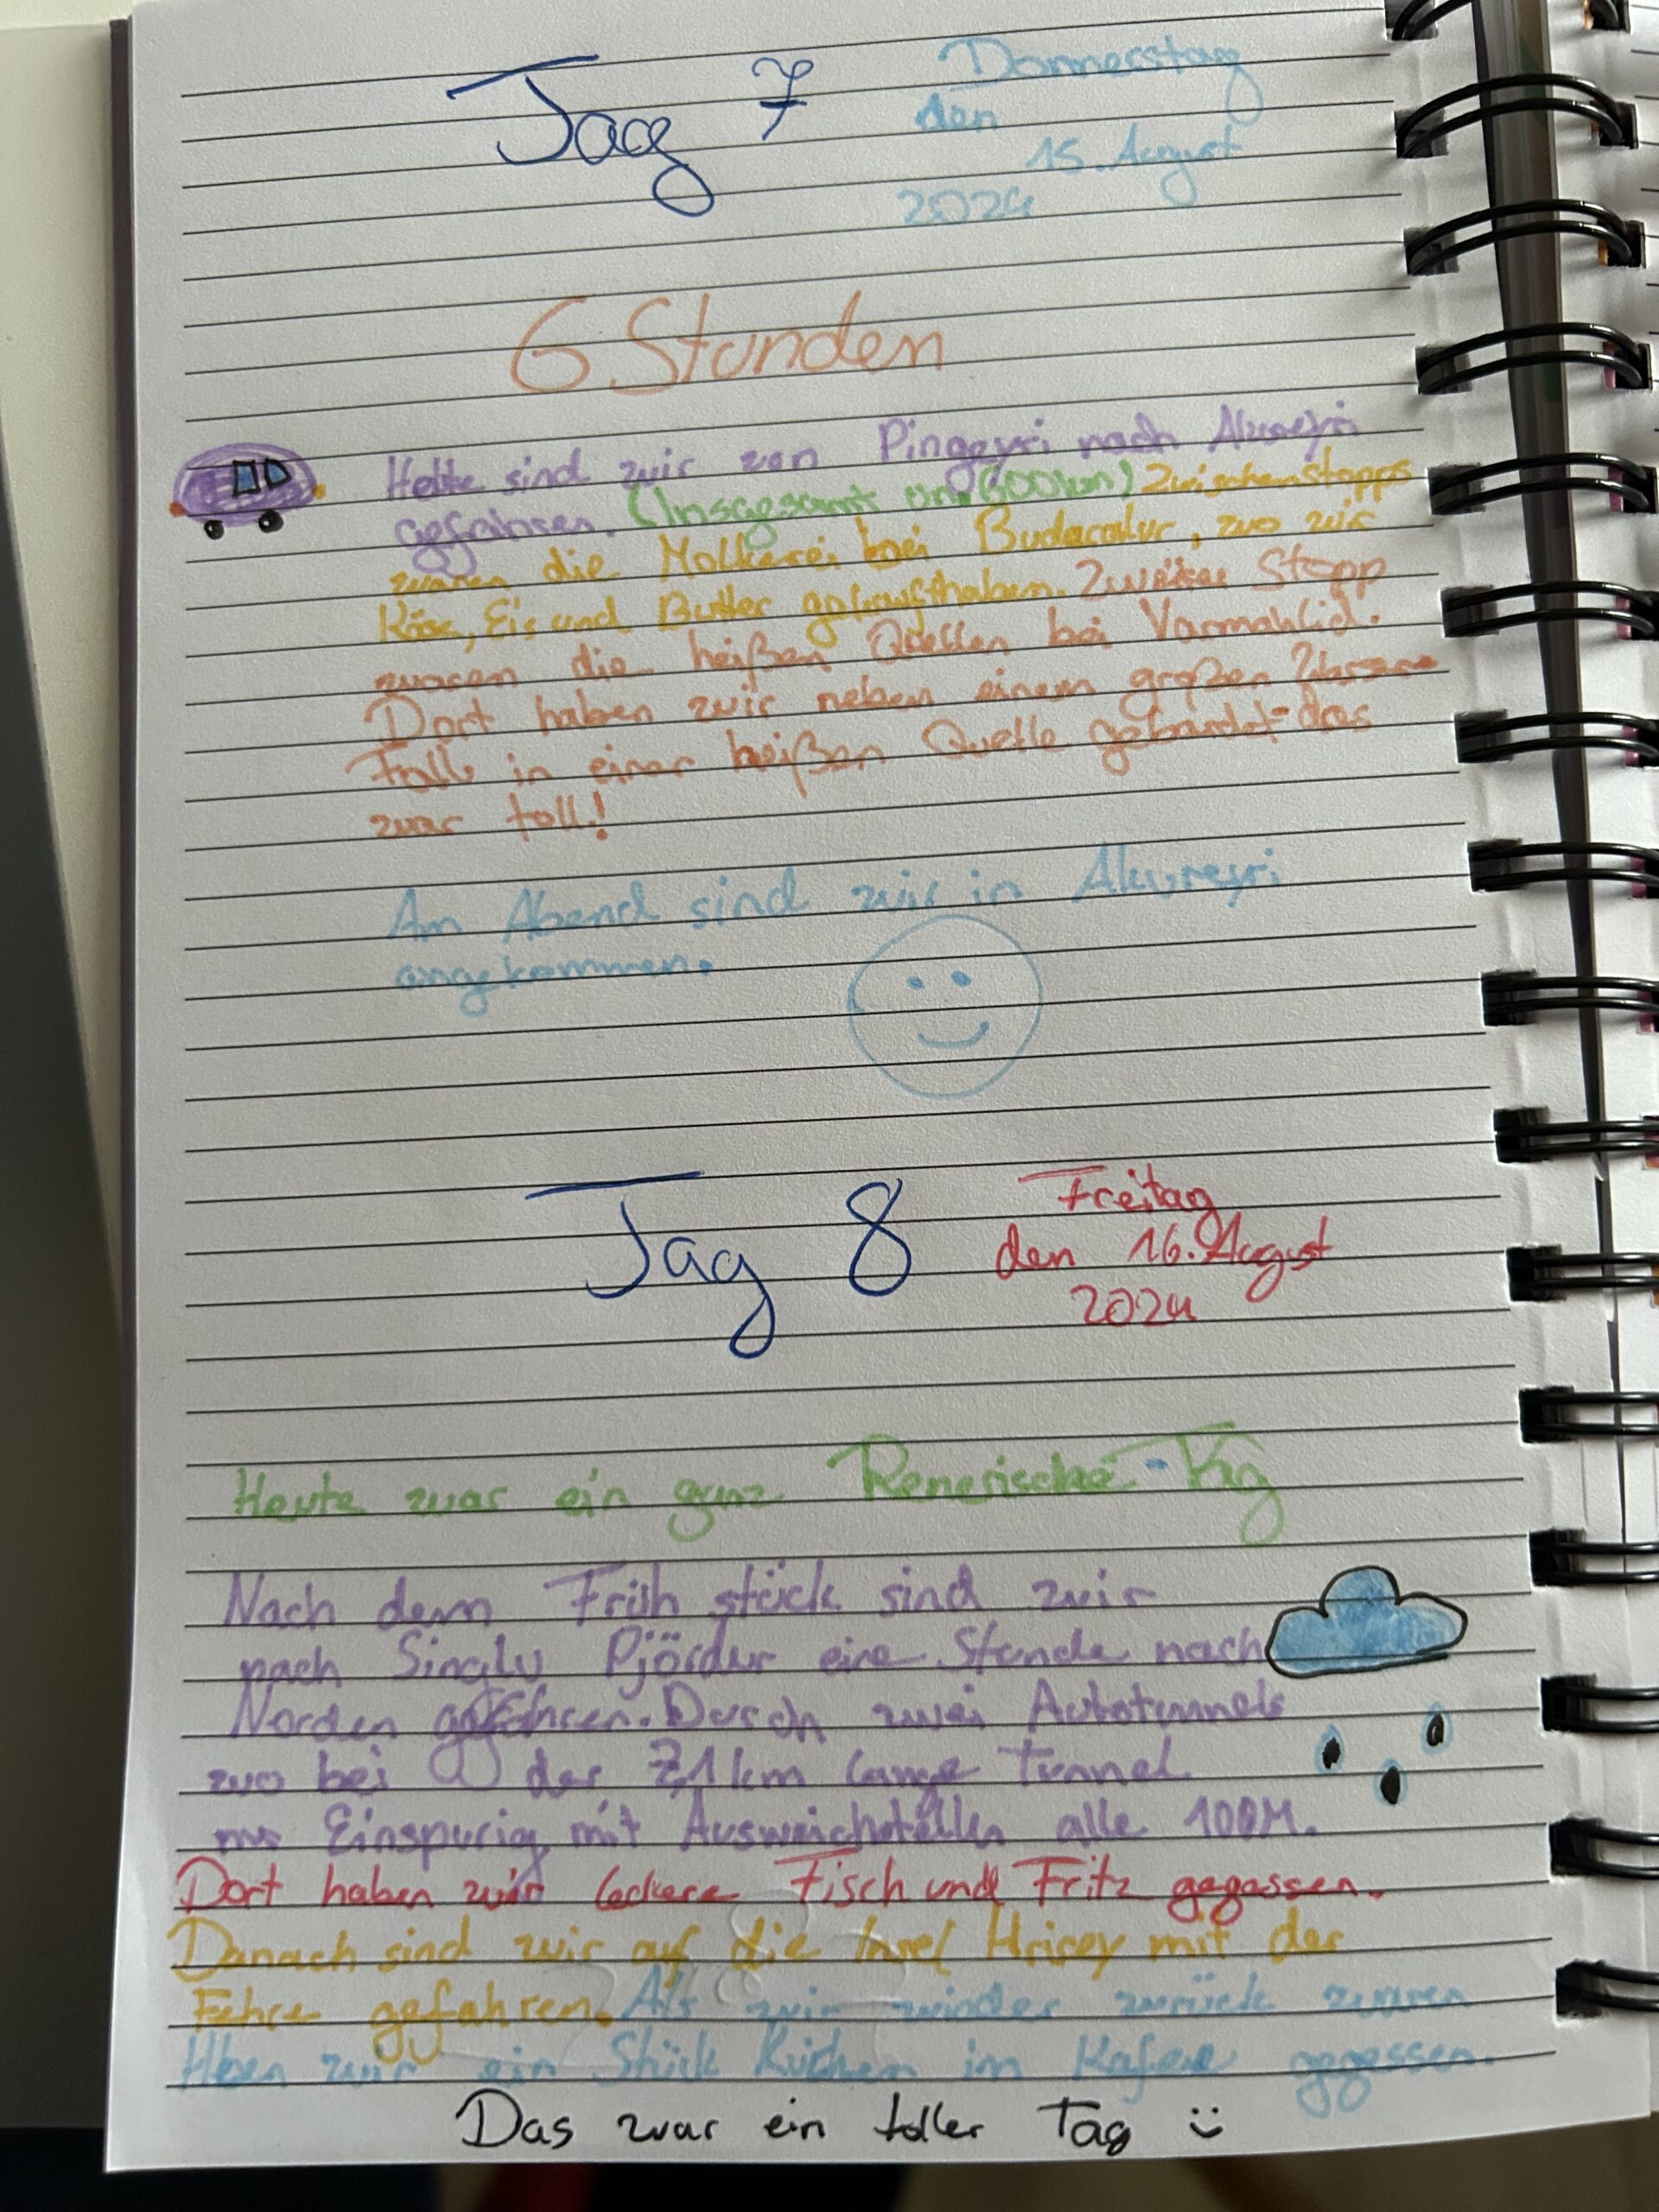 Tag 7
Donnerstag
den
15. August
2024
6 Stunden
sind wir von Pingeyri nach Akureyri
gefahren. (Insgesamt um 600km) Zwischenstopps
waren die Molkerei bei Budardalur, wo wir
Käse, Eis und Butter gekauft haben. Zweiter Stopp
waren die heißen Quellen bei Varmahlid.
Dort haben wir neben einem großen Wasser
Fall in einer heißen Quelle gebadet - das
war toll!
Am Abend sind wir in Akureyri
angekommen.
Tag 8
Freitag
den 16. August
2024
Heute war ein ganz - Tag
Nach dem Früh stück sind wir
nach Siglu Pjördur eine Stunde nach
Norden gefahren. Durch zwei Autotunnels
wo bei der 7,1km lange Tunnel
nur Einspurig mit Ausweichstellen alle 100M.
Dort haben wir leckere Fisch und Fritz gegessen.
Danach sind wir auf die Insel Hrisey mit der
Fehre gefahren. Als wir wieder zurück waren
Haben wir ein Stück Kuchen im Kafee gegessen.
Das war ein toller Tag